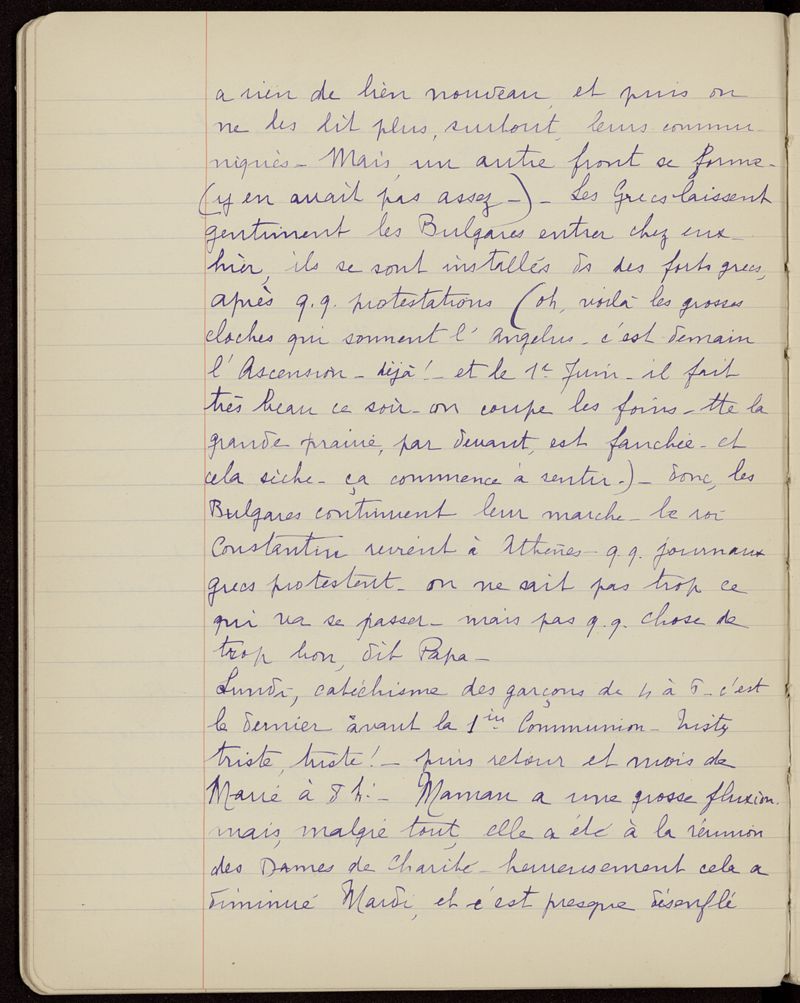 a rien de bien nouveau, et puis on
ne les lit plus, surtout, leurs commu-
niqués - Mais un autre front se forme -
(y en avait pas assez -) - Les Grecs laissent
gentiment les Bulgares entrer chez eux -
hier, ils se sont installés ds des forts grecs,
après q.q. protestations (oh, voilà les grosses
cloches qui sonnent l'angelus - c'est demain
l'Ascension - déjà ! - et le 1er Juin - il fait
très beau ce soir - on coupe les foins - tte la
grande prairie, par devant, est fauchée - et
cela sèche - ça commence à sentir -) - donc, les
Bulgares continuent leur marche - le roi
Constantin revient à Athènes - q.q. journaux
grecs protestent - on ne sait pas trop ce
qui va se passer - mais pas q.q. chose de
trop bon, dit Papa -
Lundi, catéchisme des garçons de 4 à 5 - c'est
le dernier avant la 1ière Communion - triste
triste, triste ! - puis retour et mois de
Marie à 8 h. - Maman a une grosse fluxion.
mais, malgré tout, elle a été à la réunion
des Dames de Charité - heureusement cela a
diminué Mardi, et c'est presque désenflé